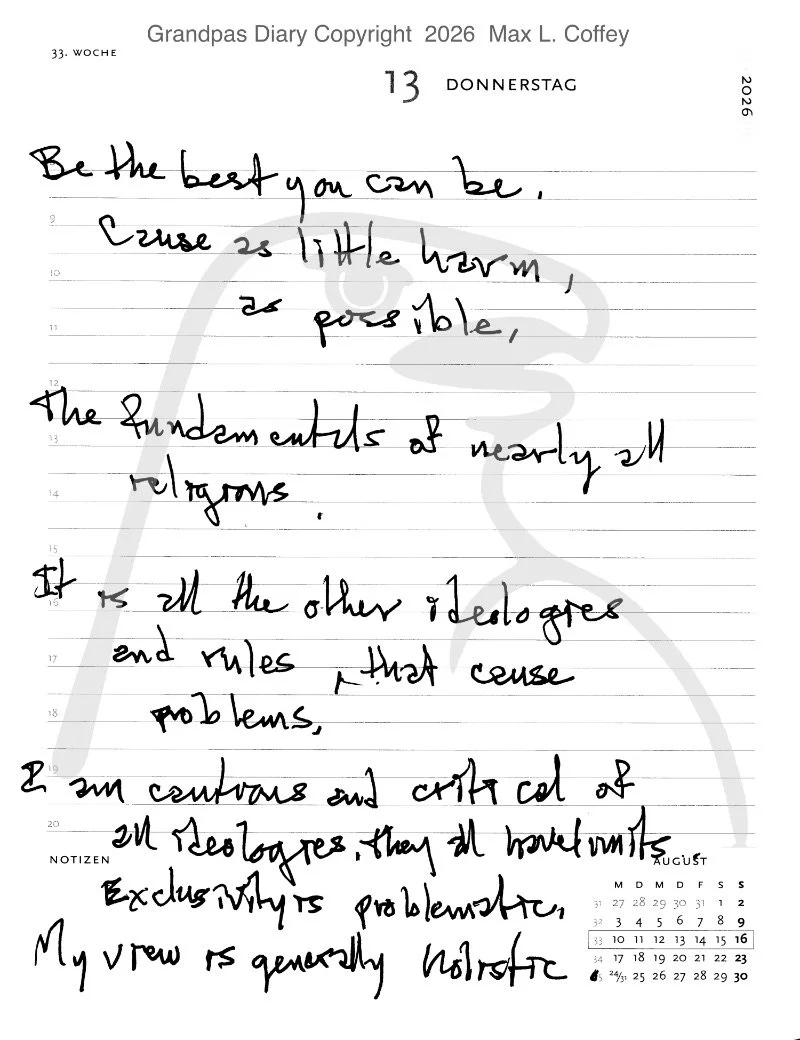 Grandpas Diary Copyright 2026 Max L. Coffey
33. WOCHE
13 DONNERSTAG
2026
Be the best you can be.
9
Cause as little harm,
10
as possible,
11
12
The fundamentals of nearly all
13
religions.
14
15
It is all the other ideologies
16
and rules, that cause
17
problems,
18
19
I am cautious and critical of
20
all ideologies, they all have limits.
NOTIZEN
AUGUST
Exclusivity is problematic,
My view is generally holistic
M D M D F S S
31 27 28 29 30 31 1 2
32 3 4 5 6 7 8 9
33 10 11 12 13 14 15 16
34 17 18 19 20 21 22 23
24/31 25 26 27 28 29 30